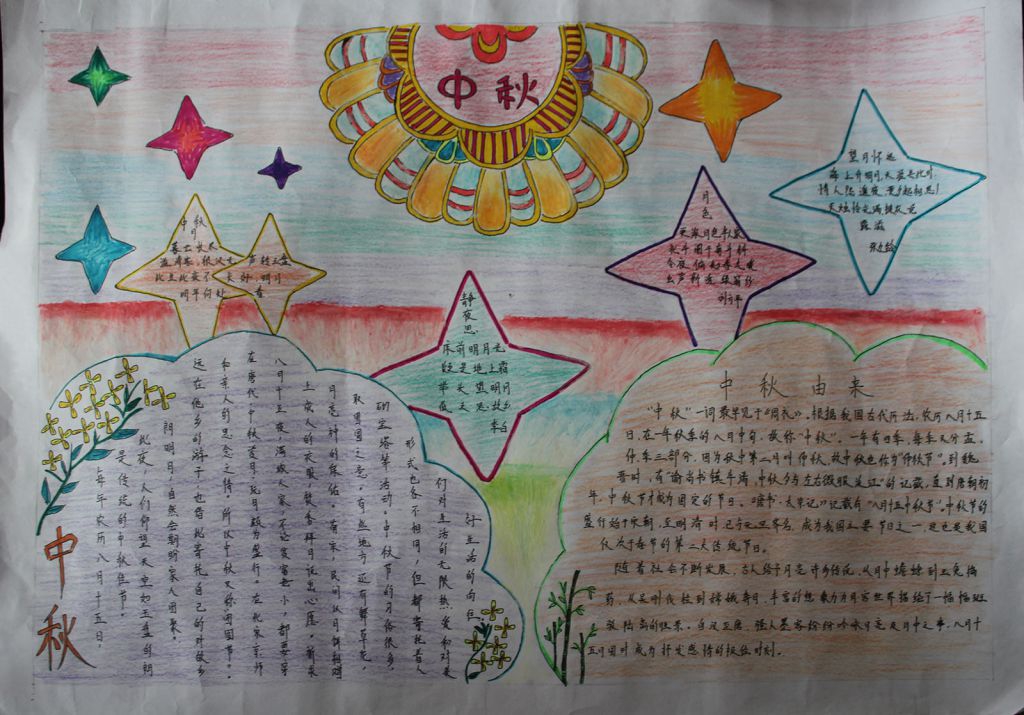 中秋
中秋
月
暮云收尽
此生此夜不长好，明月
明年何处看
静夜思
床前明月光
疑是地上霜
举头望明月
低头思故乡
李白
月色
更深月色半人家
北斗阑干南斗斜
今夜偏知春气暖
虫声新透绿窗纱
刘方平
望月怀远
海上升明月，天涯共此时。
情人怨遥夜，竟夕起相思！
灭烛怜光满，披衣觉
露滋
张九龄
中秋由来
"中秋"一词最早见于《周礼》，根据我国古代历法，农历八月十五
日，在一年秋季的八月中旬，故称"中秋"。一年有四季，每季又分孟、
仲、季三部分，因为秋中第二月叫仲秋，故中秋也称为"仲秋节"。到魏
晋时，有"谕尚书镇牛渚，中秋夕与左右微服泛江"的记载，直到唐朝初
年，中秋节才成为固定的节日。《唐书·太宗记》记载有"八月十五中秋节"。中秋节的
盛行始于宋朝，至明清时，已与元旦齐名，成为我国主要节日之一，这也是我国
仅次于春节的第二大传统节日。
随着社会不断发展，古人给予月亮许多传说，从月中蟾蜍到玉兔捣
药，从吴刚伐桂到嫦娥奔月，丰富的想象力为月宫世界描绘了一幅幅斑
骚人墨客纷纷吟咏月亮及月中之事，八月十
五月圆时成为抒发感情的极佳时刻。
每年农历八月十五日，
是传统的中秋佳节。
此夜，人们仰望天空如玉盘的朗
朗明月，自然会期盼家人团聚。
远在他乡的游子，也借此寄托自己的对故乡
和亲人的思念之情，所以中秋又称"团圆节"。
在唐代，中秋赏月、玩月颇为盛行。在北宋京师
八月十五夜，满城人家，不论贫富老小，都要穿
上成人的衣服，焚香拜月说出心愿，祈求
月亮神的保佑。南宋，民间以月饼相赠
取团圆之意。有些地方还有舞草龙，
砌宝塔等活动。中秋节的习俗很多
形式也各不相同，但都寄托着人
们对生活的无限热爱和对美
好生活的向往。
中秋